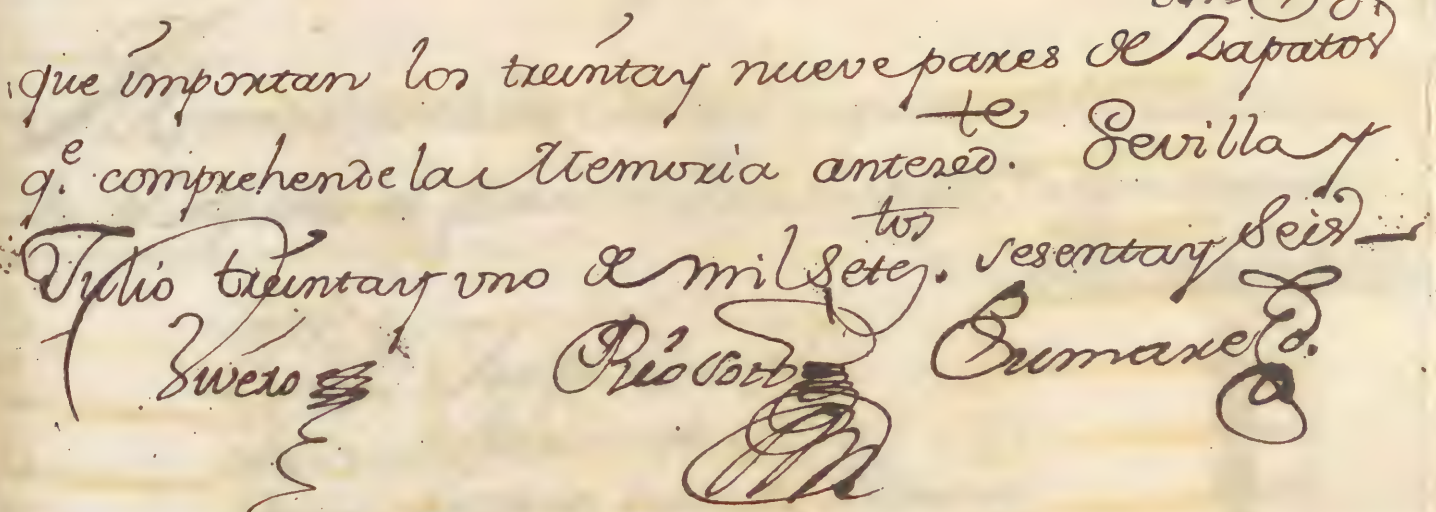 que importan los treinta y nueve pares de Zapatos
q.e comprehende la Memoria anteced.te Sevilla y
Julio treinta y uno de mil setez.tos sesenta y seis